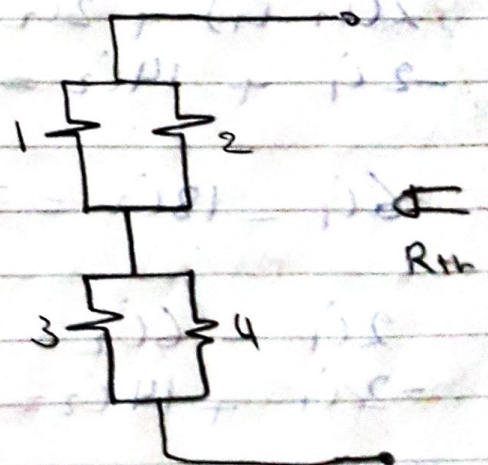 1 2
Rth
3 4